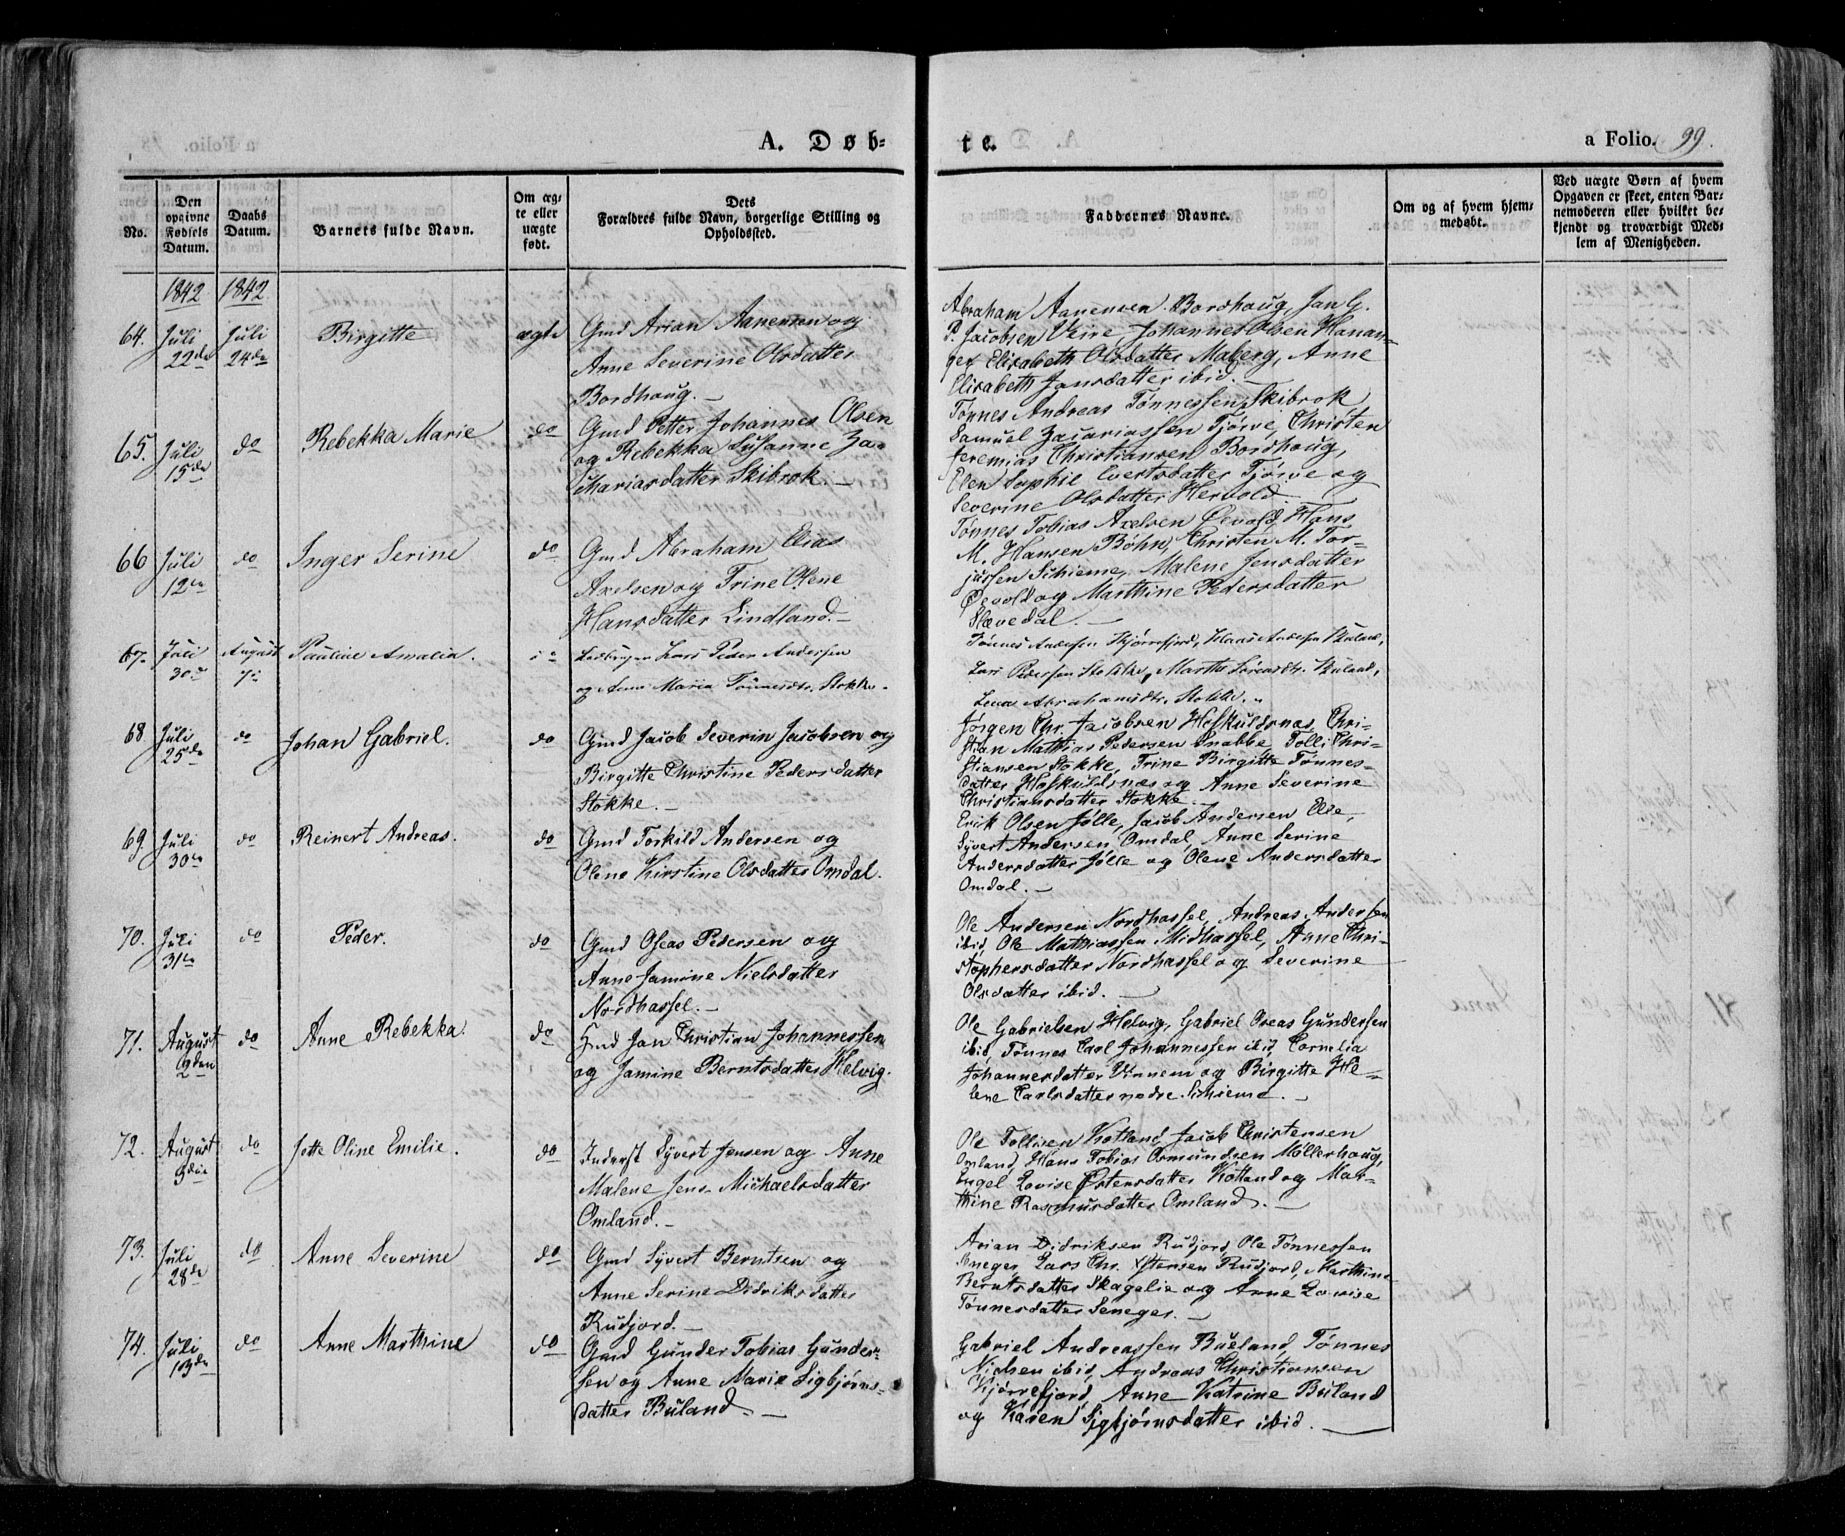 A. Døb-
te.
a Folio. 99.
No.
Den
opgivne
Fødsels
Datum.
Daabs
Datum.
Barnets fulde Navn.
Om æg-
te eller
uægte
født.
Dets
Forældres fulde Navn, borgerlige Stilling og
Opholdssted.
Faddernes Navne.
Om og af hvem hjem-
medøbt.
Ved uægte Børn af hvem
Opgaven er skeet, enten Bar-
nemoderen eller hvilket be-
kjendt og troværdigt Med-
lem af Menigheden.
1842 1842
64. Juli 22de Juli 24de Birgitte ægte
Gmd Arian Aanensen og
Anne Severine Olsdatter
Bordhoug. —
Abraham Aanensen Bordhoug, Jan G.
P. Jacobsen Vere, Johannes Olsen Hanan-
ger Elisabeth Olsdatter Maberg, Anne
Elisabeth Jansdatter ibid. —
65. Juli 15de do Rebekka Marie do
Gmd Petter Johannes Olsen
og Rebekka Susanne Za-
chariasdatter Skibrok. —
Tønnes Andreas Tønnessen Skibrok
Samuel Zacariassen Tjørve, Christen
Jeremias Christiansen Bordhoug,
Elen Sophie Evertsdatter Tjørve og
Severine Olsdatter Hervold.
66 Juli 12te do Inger Serine do
Gmd Abraham Elias
Axelsen og Trine Olene
Hansdatter Lindland. —
Tønnes Tobias Axelsen Øevold, Hans
M. Hansen Bøhn, Christen M. Tor-
jussen Schieme, Malene Jensdatter
Øevold og Marthine Pedersdatter
Slevedal. —
67. Juli 30te August 7de Pauline Amalia.
Lars Peder Andersen
og Anne Maria Tønnesdtr. Stokke.
Tønnes Andersen Kjørrefjord, Andersen Buland,
Lars Pedersen Stokke, Marthe Buland,
Lena Abrahamsdtr. Stokke.
68. Juli 25de do Johan Gabriel. do
Gmd Jacob Severin Jacobsen og
Birgitte Christine Pedersdatter
Stokke. —
Jørgen Chr. Jacobsen Høskuldsnæs, Chri-
stian Mathias Pedersen Snabbe, Tolli Chri-
stiansen Stokke, Trine Birgitte Tønnes-
datter Høskuldsnæs og Anne Severine
Christiansdatter Stokke.
69. Juli 30te do Reinert Andreas. do
Gmd Torkild Andersen og
Olene Kirstine Olsdatter Omdal.
Erik Olsen Jølle, Jacob Andersen Elle,
Syvert Andersen Omdal, Anne Serine
Andersdatter Jølle og Olene Andersdatter
Omdal. —
70. Juli 31te do Peder. do
Gmd Oseas Pedersen og
Anne Jamine Nielsdatter
Nordhassel. —
Ole Andersen Nordhassel, Andreas Andersen
ibid, Ole Mathiassen Midhassel, Anne Chri-
stophersdatter Nordhassel og Severine
Olsdatter ibid. —
71. August 2den do Anne Rebekka. do
Gmd Jan Christian Johannessen
og Jamine Berntsdatter Helvig.
Ole Gabrielsen Helvig, Gabriel Oseas Gundersen
ibid, Tønnes Carl Johannessen ibid, Cornelia
Johannesdatter Vinnem og Birgitte He-
lene Carlsdatter nedre Schieme. —
72. August 3die do Jette Oline Emilie. do
Inderst Syvert Jensen og Anne
Malene Jens Michaelsdatter
Omland. —
Ole Tollisen Kotland, Jacob Christensen
Omland, Hans Tobias Osmundsen Møllerhoug,
Engel Lovise Østensdatter Kotland og Mar-
thine Rasmusdatter Omland. —
73. Juli 28de do Anne Severine do
Gmd Syvert Berntsen og
Anne Serine Didriksdatter
Rudjord. —
Arian Didriksen Rudjord, Ole Tønnessen
Seneger, Lars Chr. Østensen Rudjord, Marthine
Berntsdatter Skagelie og Anne Lovise
Tønnesdatter Seneger. —
74. Juli 13de do Anne Marthine do
Gmd Gunder Tobias Gunder-
sen og Anne Marie Sigbjørns-
datter Buland. —
Gabriel Andreassen Bueland, Tønnes
Nielsen ibid, Andreas Christiansen
Kjørrefjord, Anne Katrine Buland
og Karen Sigbjørnsdatter ibid. —